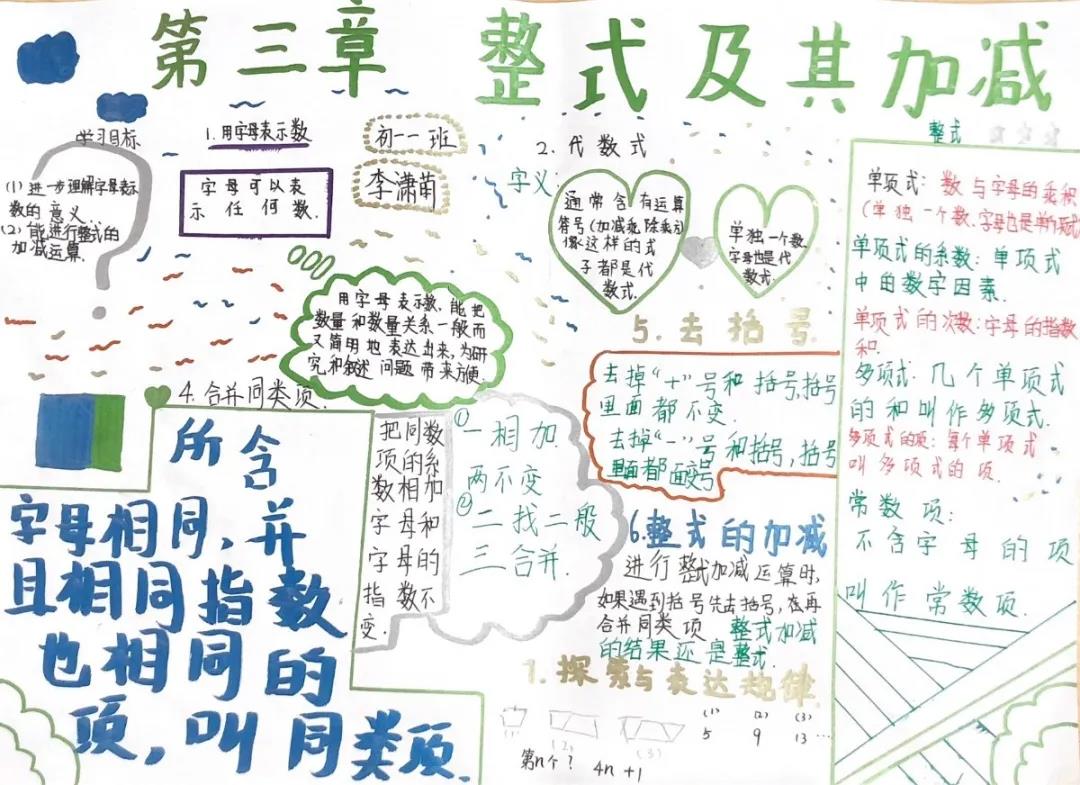 第三章 整式及其加减
学习目标
(1) 进一步理解字母表示
数的意义.
(2) 能进行整式的
加减运算.
1. 用字母表示数
字母可以表
示任何数.
初一一班
李潇菊
用字母表示数,能把
数量和数量关系一般而
又简用地表达出来,为研
究和叙述问题带来方便.
2. 代数式
字义:
通常含有运算
符号(加减乘除乘方)
像这样的式
子都是代
数式.
单独一个数
字母也是代
数式.
整式
单项式: 数与字母的乘积
(单独一个数、字母也是单项式)
单项式的系数: 单项式
中的数字因素.
单项式的次数: 字母的指数
和.
多项式: 几个单项式
的和叫作多项式.
多项式的项: 每个单项式
叫多项式的项.
常数项:
不含字母的项
叫作常数项.
4. 合并同类项.
所含
字母相同,并
且相同指数
也相同的
项,叫同类项.
把同数
项的系
数相加
字母和
字母的
指数不
变.
① 一相加
两不变
② 二找二般
三合并.
5. 去括号.
去掉“+”号和括号,括号
里面都不变.
去掉“-”号和括号,括号
里面都面变号
6. 整式的加减
进行整式加减运算时,
如果遇到括号先去括号,在再
合并同类项 整式加减
的结果还是整式.
1. 探索与表达规律.
(1) (2) (3)
(1) (2) (3)
5 9 13 …
第n个? 4n+1